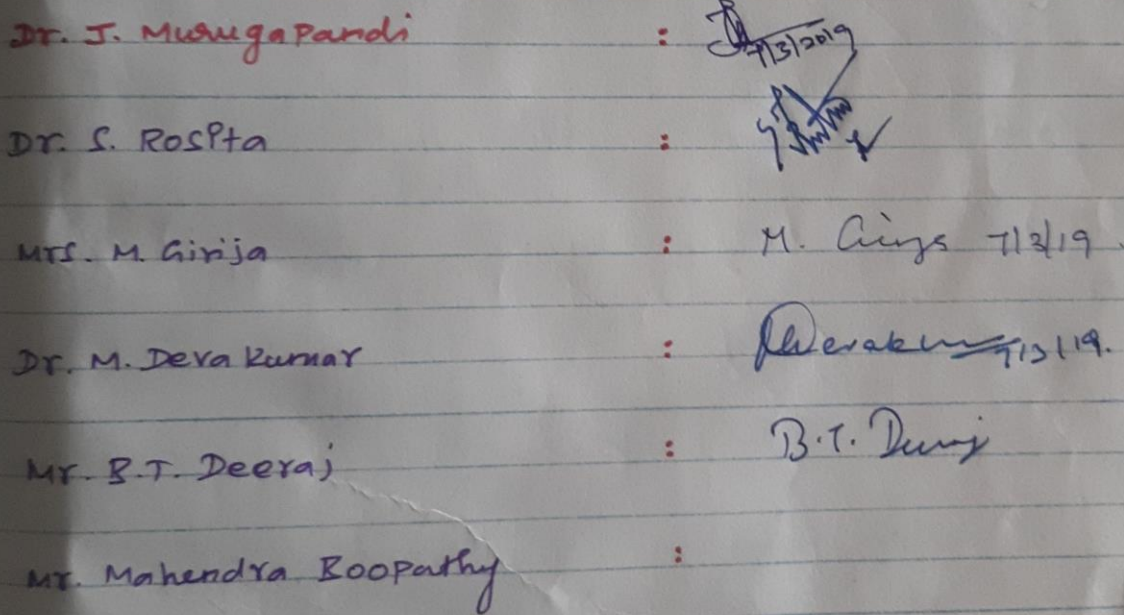 Dr. J. Murugapandi : 7/3/2019
Dr. S. Rospta :
Mrs. M. Girija : M. Girija 7/3/19
Dr. M. Deva Kumar : Devakum 7/3/19.
Mr. B.T. Deeraj : B.T. Deeraj
Mr. Mahendra Boopathy :